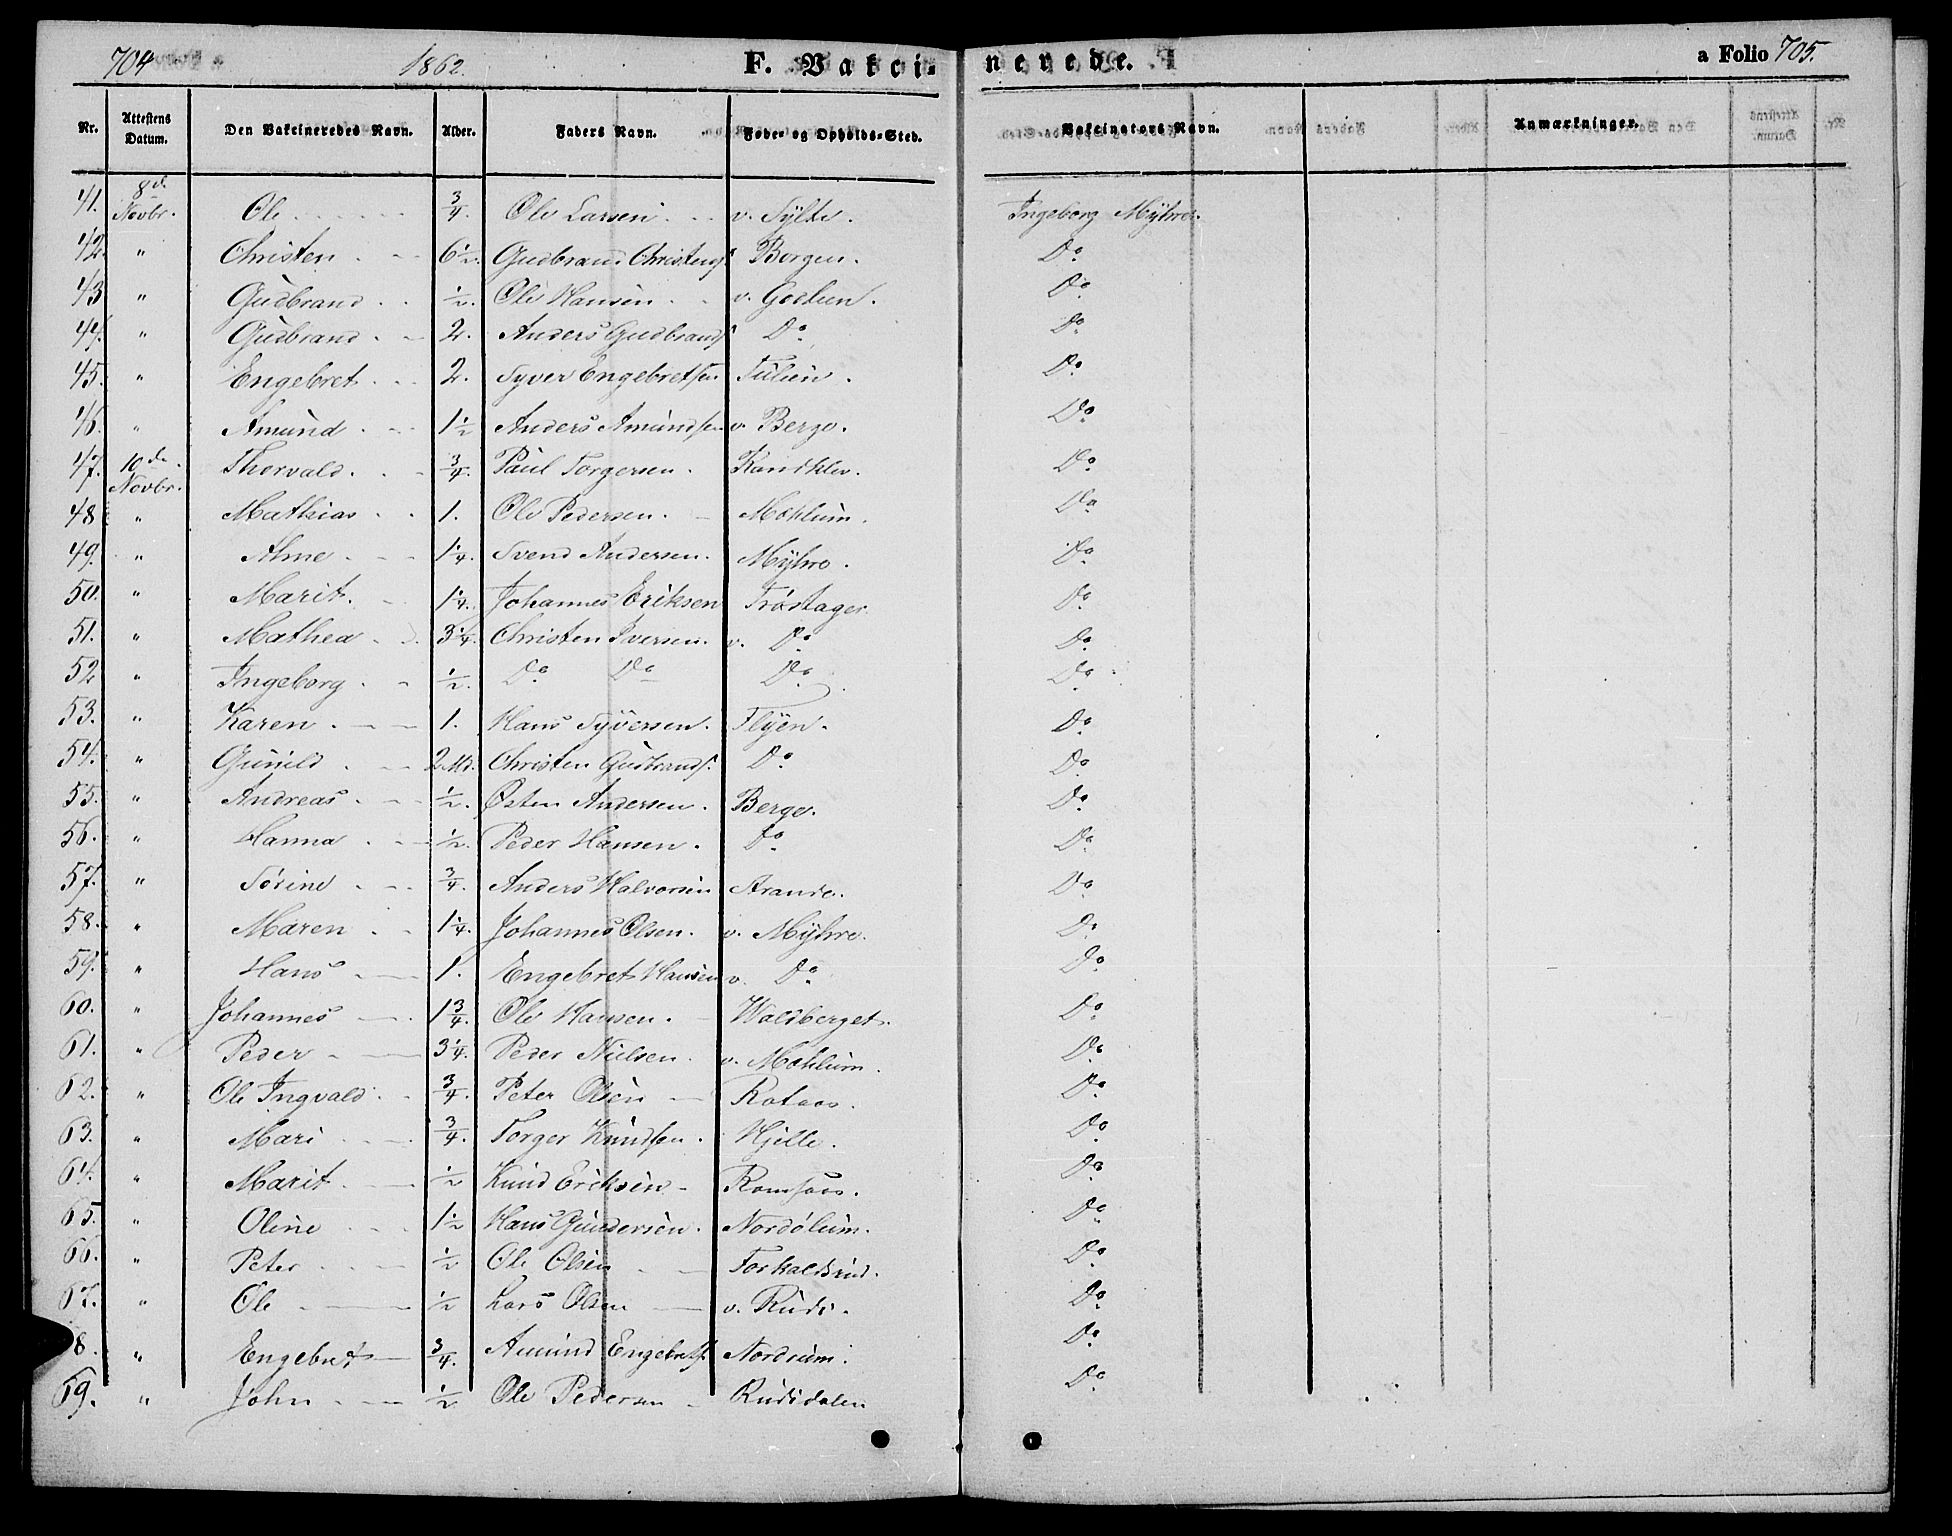 704 1862. F. Vakci-
nerede. a Folio 705.
Nr. Attestens Datum. Den Vakcineredes Navn. Alder. Faders Navn. Føde- og Opholds-Sted. Vakcinators Navn. Anmærkninger.
41. 8de Novbr. Ole 3/4. Ole Larsen v. Sylte. Ingeborg Myhre.
42. " Christen 6 1/2. Gudbrand Christens. Borgen. Do
43 " Gudbrand 1/2. Ole Hansen v. Godlien. Do
44. " Gudbrand 2. Anders Gudbrands. Do Do
45. " Engebret 2. Syver Engebretsen Tulien. Do
46. " Amund 1 1/2 Anders Amundsen v. Berge. Do
47. 10de Novbr. Thorvald. 3/4. Paul Torgersen. Kandklev. Do
48 " Mathias 1. Ole Pedersen. Mohlum. Do
49. " Alme 1 1/4. Svend Andersen. Myhre. Do
50. " Marit. 1 1/4. Johannes Eriksen Trøstager. Do
51. " Mathea 3 1/4. Christen Iversen. v. Do Do
52 " Ingeborg 1/2. Do Do Do Do
53. " Karen 1. Hans Syversen. Flyen. Do
54. " Gunild 2 Md. Christen Gudbrands. Do Do
55. " Andreas 1/2. Østen Andersen. Berge. Do
56. " Hanna 1/2. Peder Hansen. Do Do
57. " Sørine 3/4. Anders Halvorsen Strande. Do
58. " Maren 1 1/4. Johannes Olsen. v. Myhre. Do
59. " Hans 1. Engebret Hansen v. Do Do
60. " Johannes 1 3/4. Ole Hansen. Waldberget. Do
61. " Peder 3 1/4. Peder Nielsen. v. Mohlum. Do
62. " Ole Ingvald 3/4. Peter Olsen Rotaas. Do
63. " Mari 3/4. Torger Knudsen. Hjelle. Do
64. " Marit 1/2 Knud Eriksen Romsaas. Do
65. " Oline 1 1/2 Hans Gundersen. Nordølum. Do
66. " Peter 1/2 Ole Olsen Forkalsrud. Do
67. " Ole 1/2 Lars Olsen v. Rudi. Do
8. " Engebret 3/4. Amund Engebrets. Nordrum. Do
69. " John 1/2 Ole Pedersen Rudidalen Do